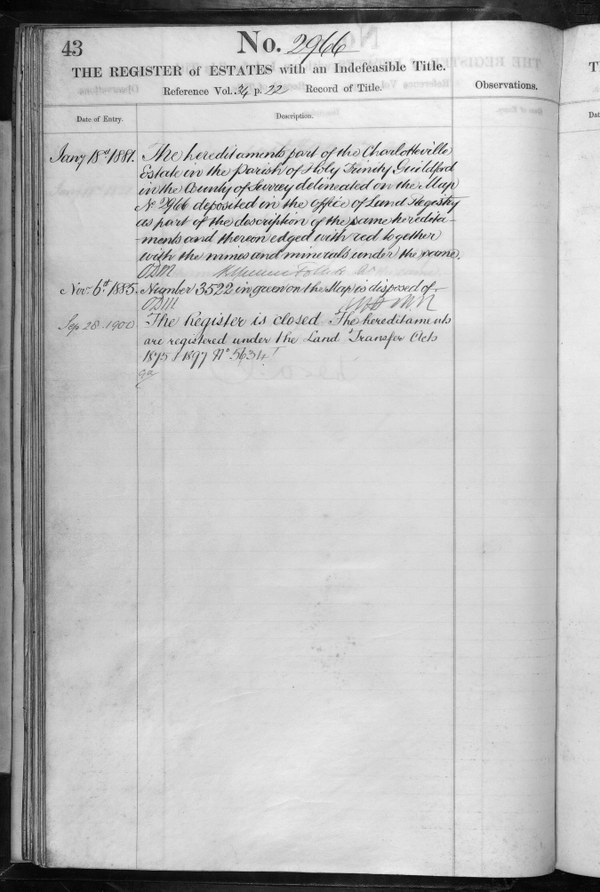 43
No. 2966
THE REGISTER of ESTATES with an Indefeasible Title.
Reference Vol. 34 p. 22 Record of Title.
Observations.
Date of Entry.
Description.
Jany 18th 1881. The hereditaments part of the Charlotteville
Estate in the Parish of Holy Trinity Guildford
in the County of Surrey delineated on the Map
No 2966 deposited in the Office of Land Registry
as part of the description of the same heredita-
-ments and thereon edged with red together
with the mines and minerals under the same.
Novr 6th 1885. Number 3522 in green on the Map is disposed of
Sep 28 1900 The Register is closed The hereditaments
are registered under the Land Transfer Acts
1875 & 1897 No 5634